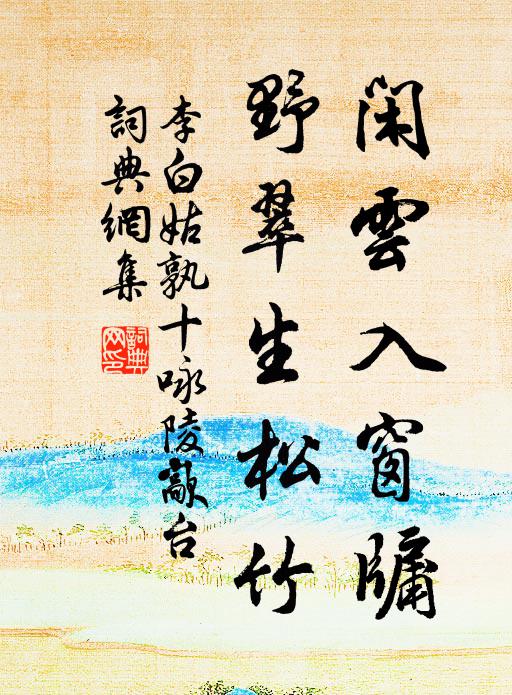 閑雲入窗牖
野翠生松竹
李白姑孰十咏陵歊台
詞典網集
詞典
网印